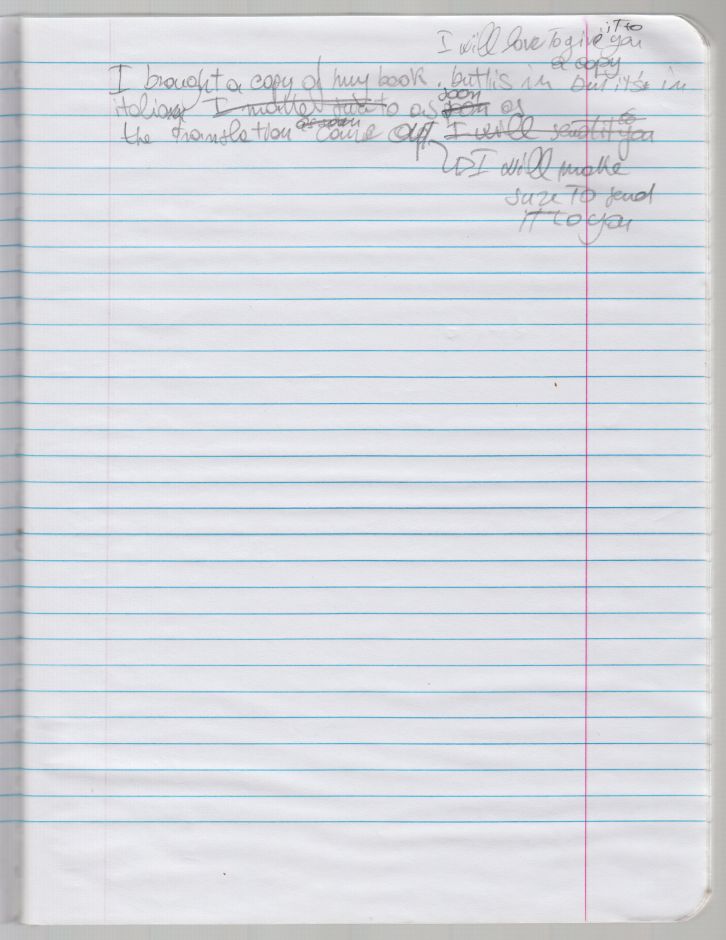 it to
I will love to give you
a copy
I brought a copy of my book. but is in but it's in
soon
italian to as soon as
the translation as soon came out I will send it to you
I will make
sure to send
it to you